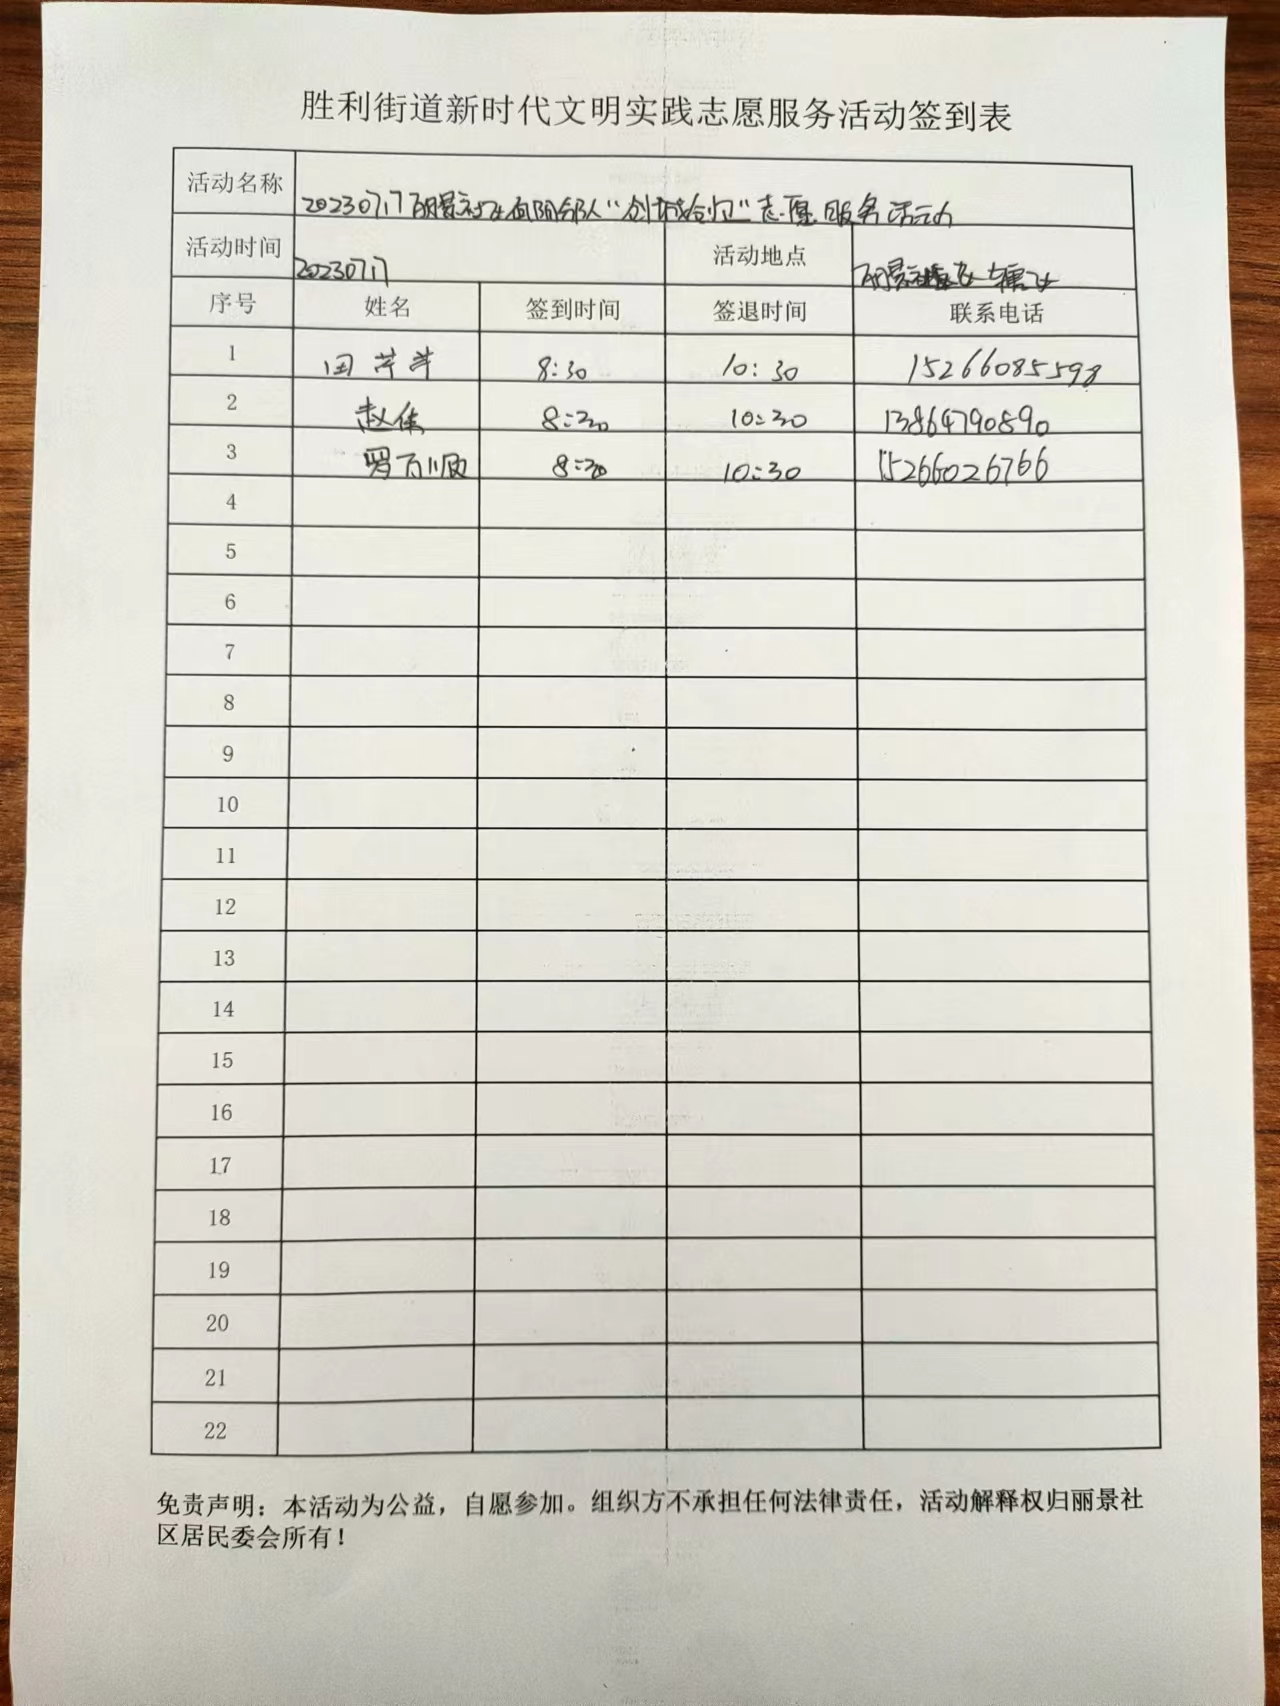 胜利街道新时代文明实践志愿服务活动签到表
活动名称 20230717丽景社区向阳部队"创城创卫"志愿服务活动
活动时间 20230717 活动地点 丽景社区辖区
序号 姓名 签到时间 签退时间 联系电话
1 田芹芹 8:30 10:30 15266085598
2 赵佳 8:30 10:30 13864790890
3 罗百顺 8:30 10:30 15266026766
4
5
6
7
8
9
10
11
12
13
14
15
16
17
18
19
20
21
22
免责声明：本活动为公益，自愿参加。组织方不承担任何法律责任，活动解释权归丽景社
区居民委会所有！